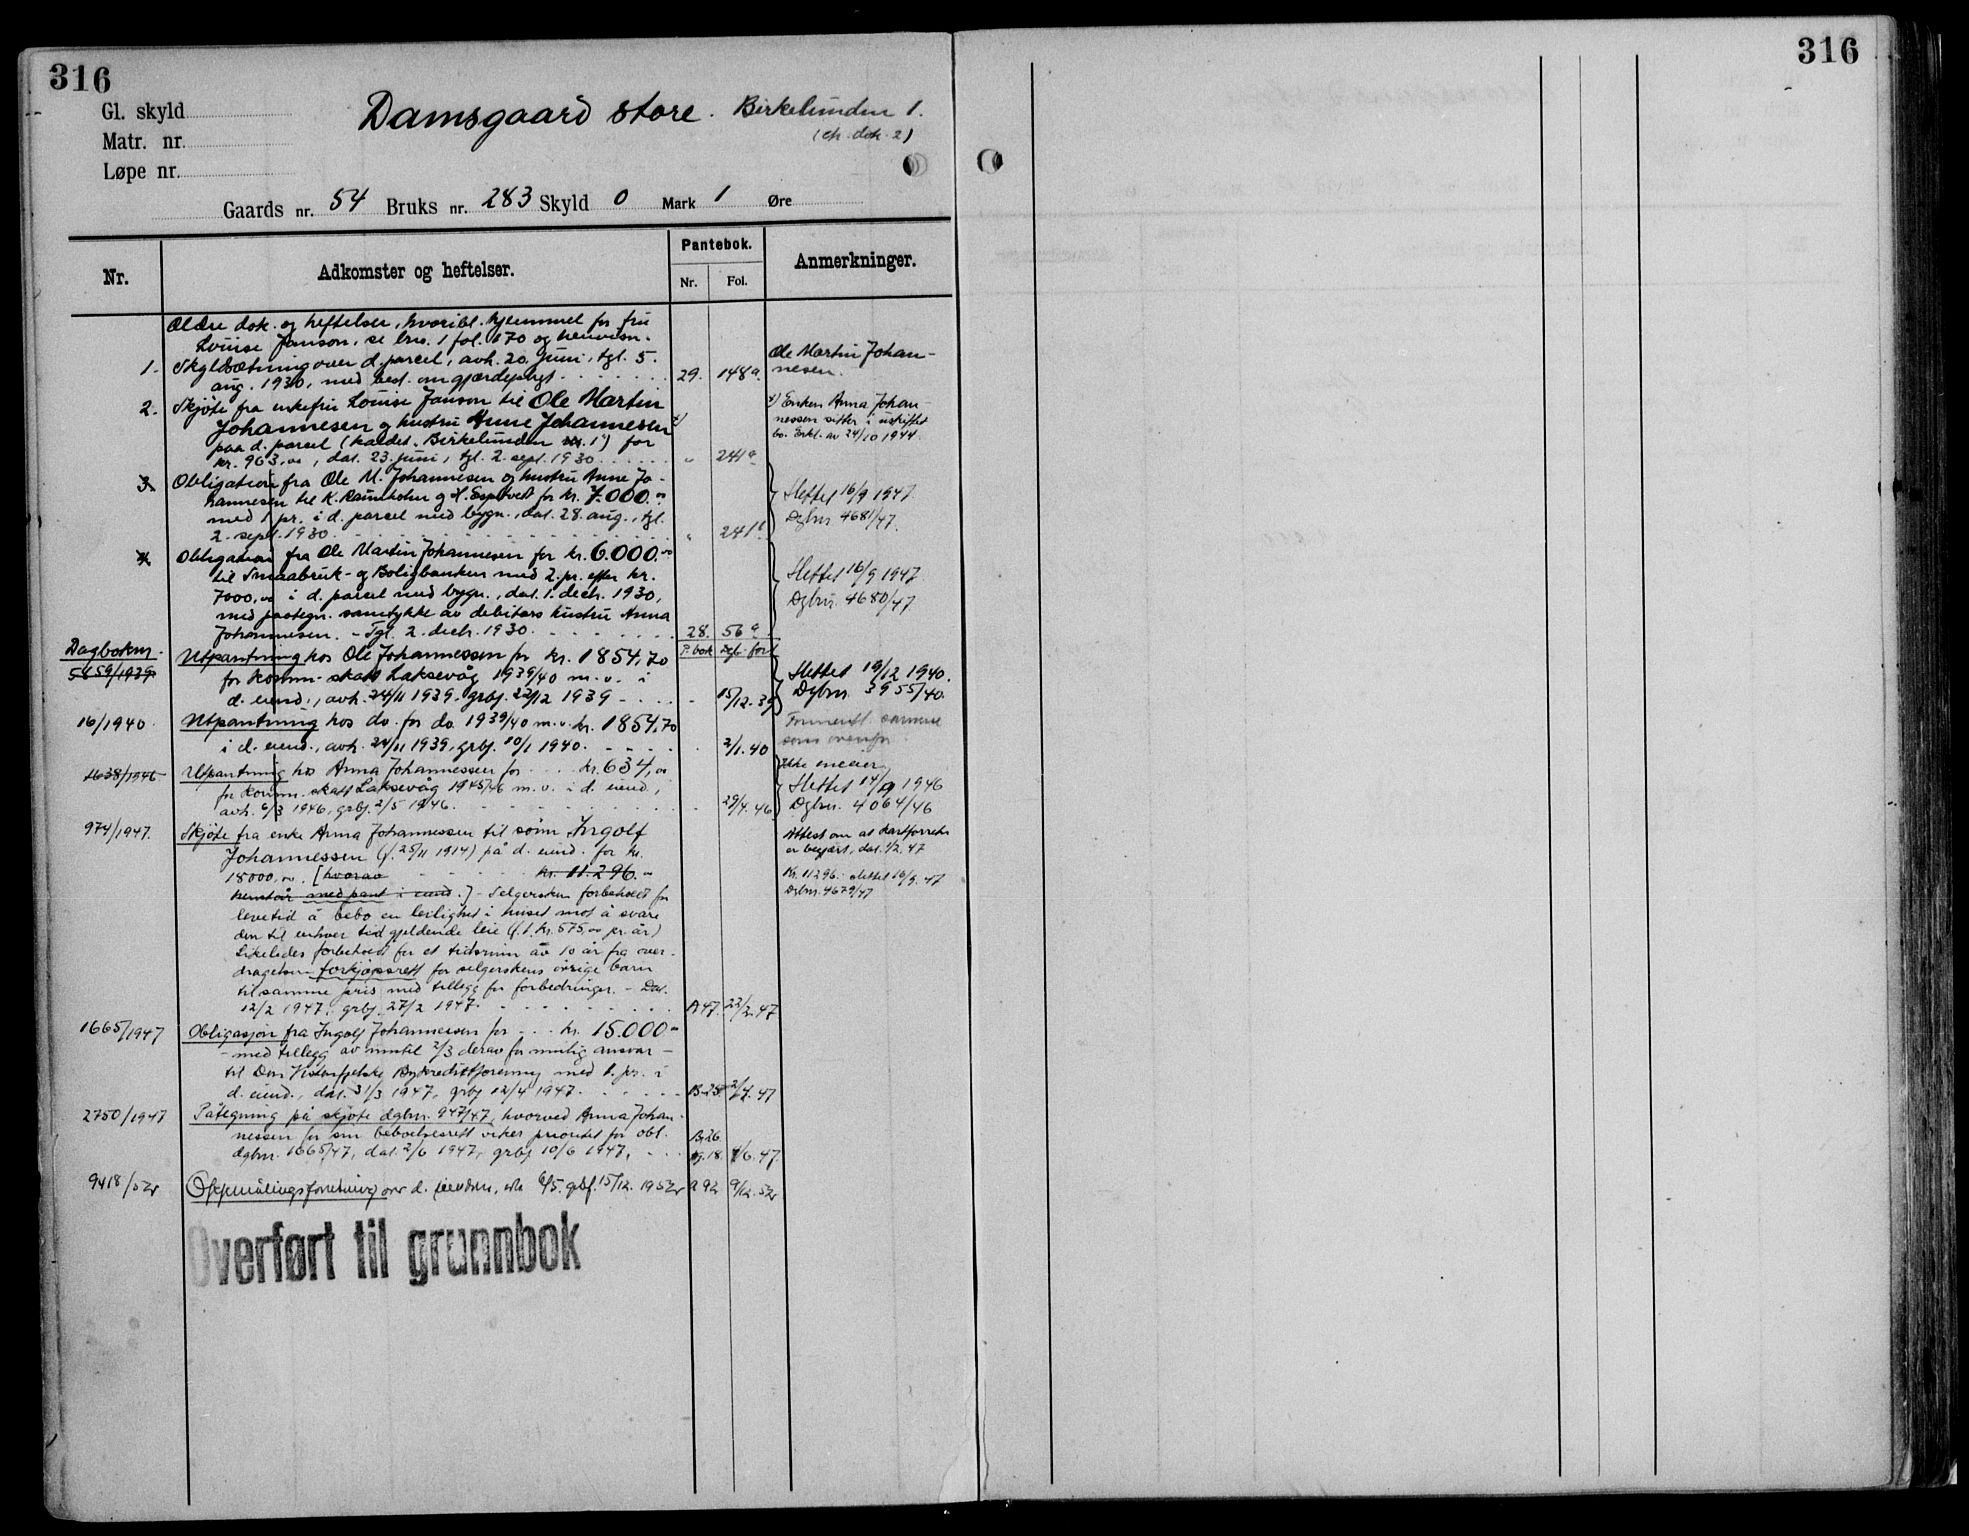 316
316
Gl. skyld
Matr. nr.
Løpe nr.
Damsgaard store. Birkelunden 1.
(dok. 2)
Gaards nr. 54 Bruks nr. 283 Skyld 0 Mark 1 Øre
Nr. Adkomster og heftelser. Pantebok. Nr. Fol. Anmerkninger.
Ældre dok. og heftelser, hvoribl. hjemmel for fru
Louise Janson, se bnr. 1 fol. 170 og henvisn.
1. Skyldsætning over d. parcel, avh. 20. juni, tgl. 5.
aug. 1930, med best. om gjærdeplygt 29. 148a.
Ole Martin Johan-
nesen.
2. Skjøte fra enkefru Louise Janson til Ole Martin
Johannesen og hustru Anne Johannesen x)
paa d. parcel (kaldet "Birkelunden 1") for
kr. 963,00, dat. 23. juni, tgl. 2. sept. 1930 " 241a
x) Enken Anna Johan-
nessen sitter i uskiftet
bo. Erkl. av 24/10 1944.
3. Obligation fra Ole M. Johannesen og hustru Anne Jo-
hannesen til K. Ramsholm og H. Espetvedt for kr. 7.000.00
med 1 pr. i d. parcel med bygn., dat. 28. aug., tgl.
2. sept. 1930 " 241b
Slettet 16/9 1947.
Dgbnr 4681/47.
4. Obligation fra Ole Martin Johannesen for kr. 6.000.00
til Smaabruk- og Boligbanken med 2. pr. efter kr.
7000,00 i d. parcel med bygn., dat. 1. decb. 1930,
med paategn. samtykke av debitors hustru Anna
Johannesen. - Tgl. 2. decb. 1930. 28. 56a
Slettet 16/9 1947
Dgbnr. 4680/47
Dagboknr. P. bok Dgb. ført
5859/1939 Utpantning hos Ole Johannessen for kr. 1854,70
for komm. skatt Laksevåg 1939/40 m.v. i
d. eiend., avh. 24/11 1939, grbf. 22/12 1939 - 15/12.39
Slettet 19/12 1940.
Dgbnr. 3955/40.
16/1940. Utpantning hos do. for do 1939/40 m.v. kr. 1854,70
i d. eiend., avh. 24/11 1939, grbf. 10/1 1940. 2/1.40
Forment. samme
som ovenfor.
1638/1946 Utpantning hos Anna Johannessen for kr. 634,00
for komm. skatt Laksevåg 1945/46 m.v. i d. eiend.,
avh. 6/3 1946, grbf. 2/5 1946. 29/4.46
Ikke eneeier
Slettet 14/9 1946
Dgbnr. 4064/46
974/1947. Skjøte fra enke Anna Johannessen til sønn Ingolf
Johannessen (f. 25/11 1914) på d. eiend. for kr.
18000,00. [hvorav kr. 11.296.00
henstår med pant i eiend.] - Selgersken forbeholdt for
levetid å bebo en leilighet i huset mot å svare
den til enhver tid gjeldende leie (f.t. kr. 575,00 pr. år)
Likeledes forbeholdt for et tidsrum av 10 år fra over-
dragelsen forkjøpsrett for selgerskens øvrige barn
til samme pris med tillegg for forbedringer. - Dat.
12/2 1947, grbf. 27/2 1947. A 47. 22/2.47
Attest om at kartforretn.
er begjært, dat. 1/2.47
Kr. 11296.- slettet 16/9.47
Dgbnr. 4679/47
1665/1947 Obligasjon fra Ingolf Johannessen for kr. 15.000.00
- med tillegg av inntil 2/3 derav for mulig ansvar -
til Den Vestenfjelske Bykredittforening med 1. pr. i
d. eiend., dat. 31/3 1947, grbf 12/4 1947. B.25. 2/4.47
2750/1947 Påtegning på skjøte dgbnr. 947/47, hvorved Anna Johan-
nessen for sin beboelsesrett viker prioritet for obl.
dgbnr. 1665/47, dat. 2/6 1947, grbf 10/6 1947. B.26 4/6.47.
9418/52 Oppmålingsforretning over d. eiendom, grbf. 15/12. 1952 A 92 9/12.52
Overført til grunnbok